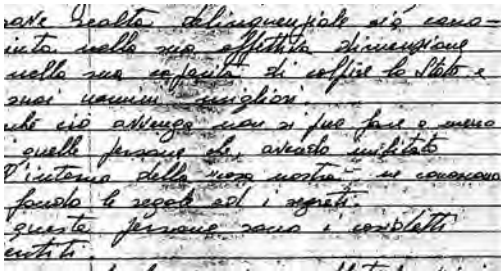 realtà delinquenziale sia cono-
nella sua effettiva dimensione
nella sua capacità di colpire lo Stato e
suoi uomini migliori.
ché ciò avvenga non si può fare a meno
quelle persone che, avendo militato
all'interno della "cosa nostra" ne conoscono
fondo le regole ed i segreti.
queste persone sono i cosidetti
entiti.